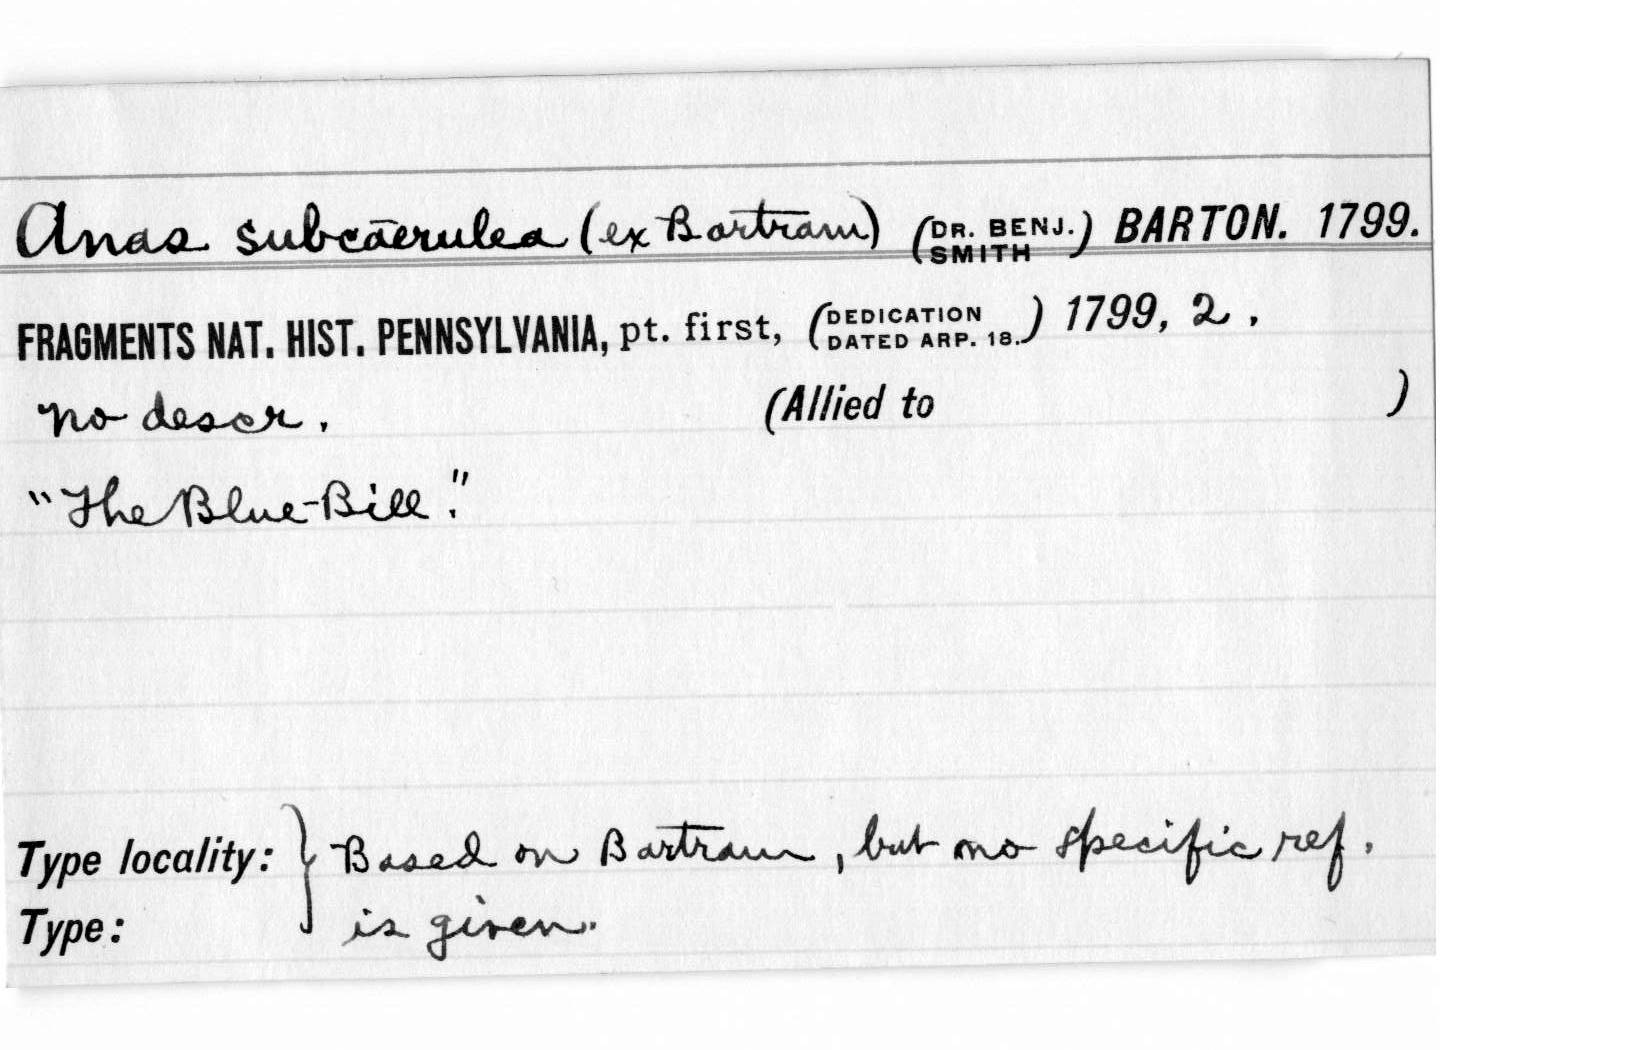 Anas subcāerulea (ex Bartram) (DR. BENJ. SMITH) BARTON. 1799.
FRAGMENTS NAT. HIST. PENNSYLVANIA, pt. first, (DEDICATION DATED ARP. 18.) 1799, 2.
no descr. (Allied to )
"The Blue-Bill."
Type locality: } Based on Bartram, but no specific ref.
Type: is given.